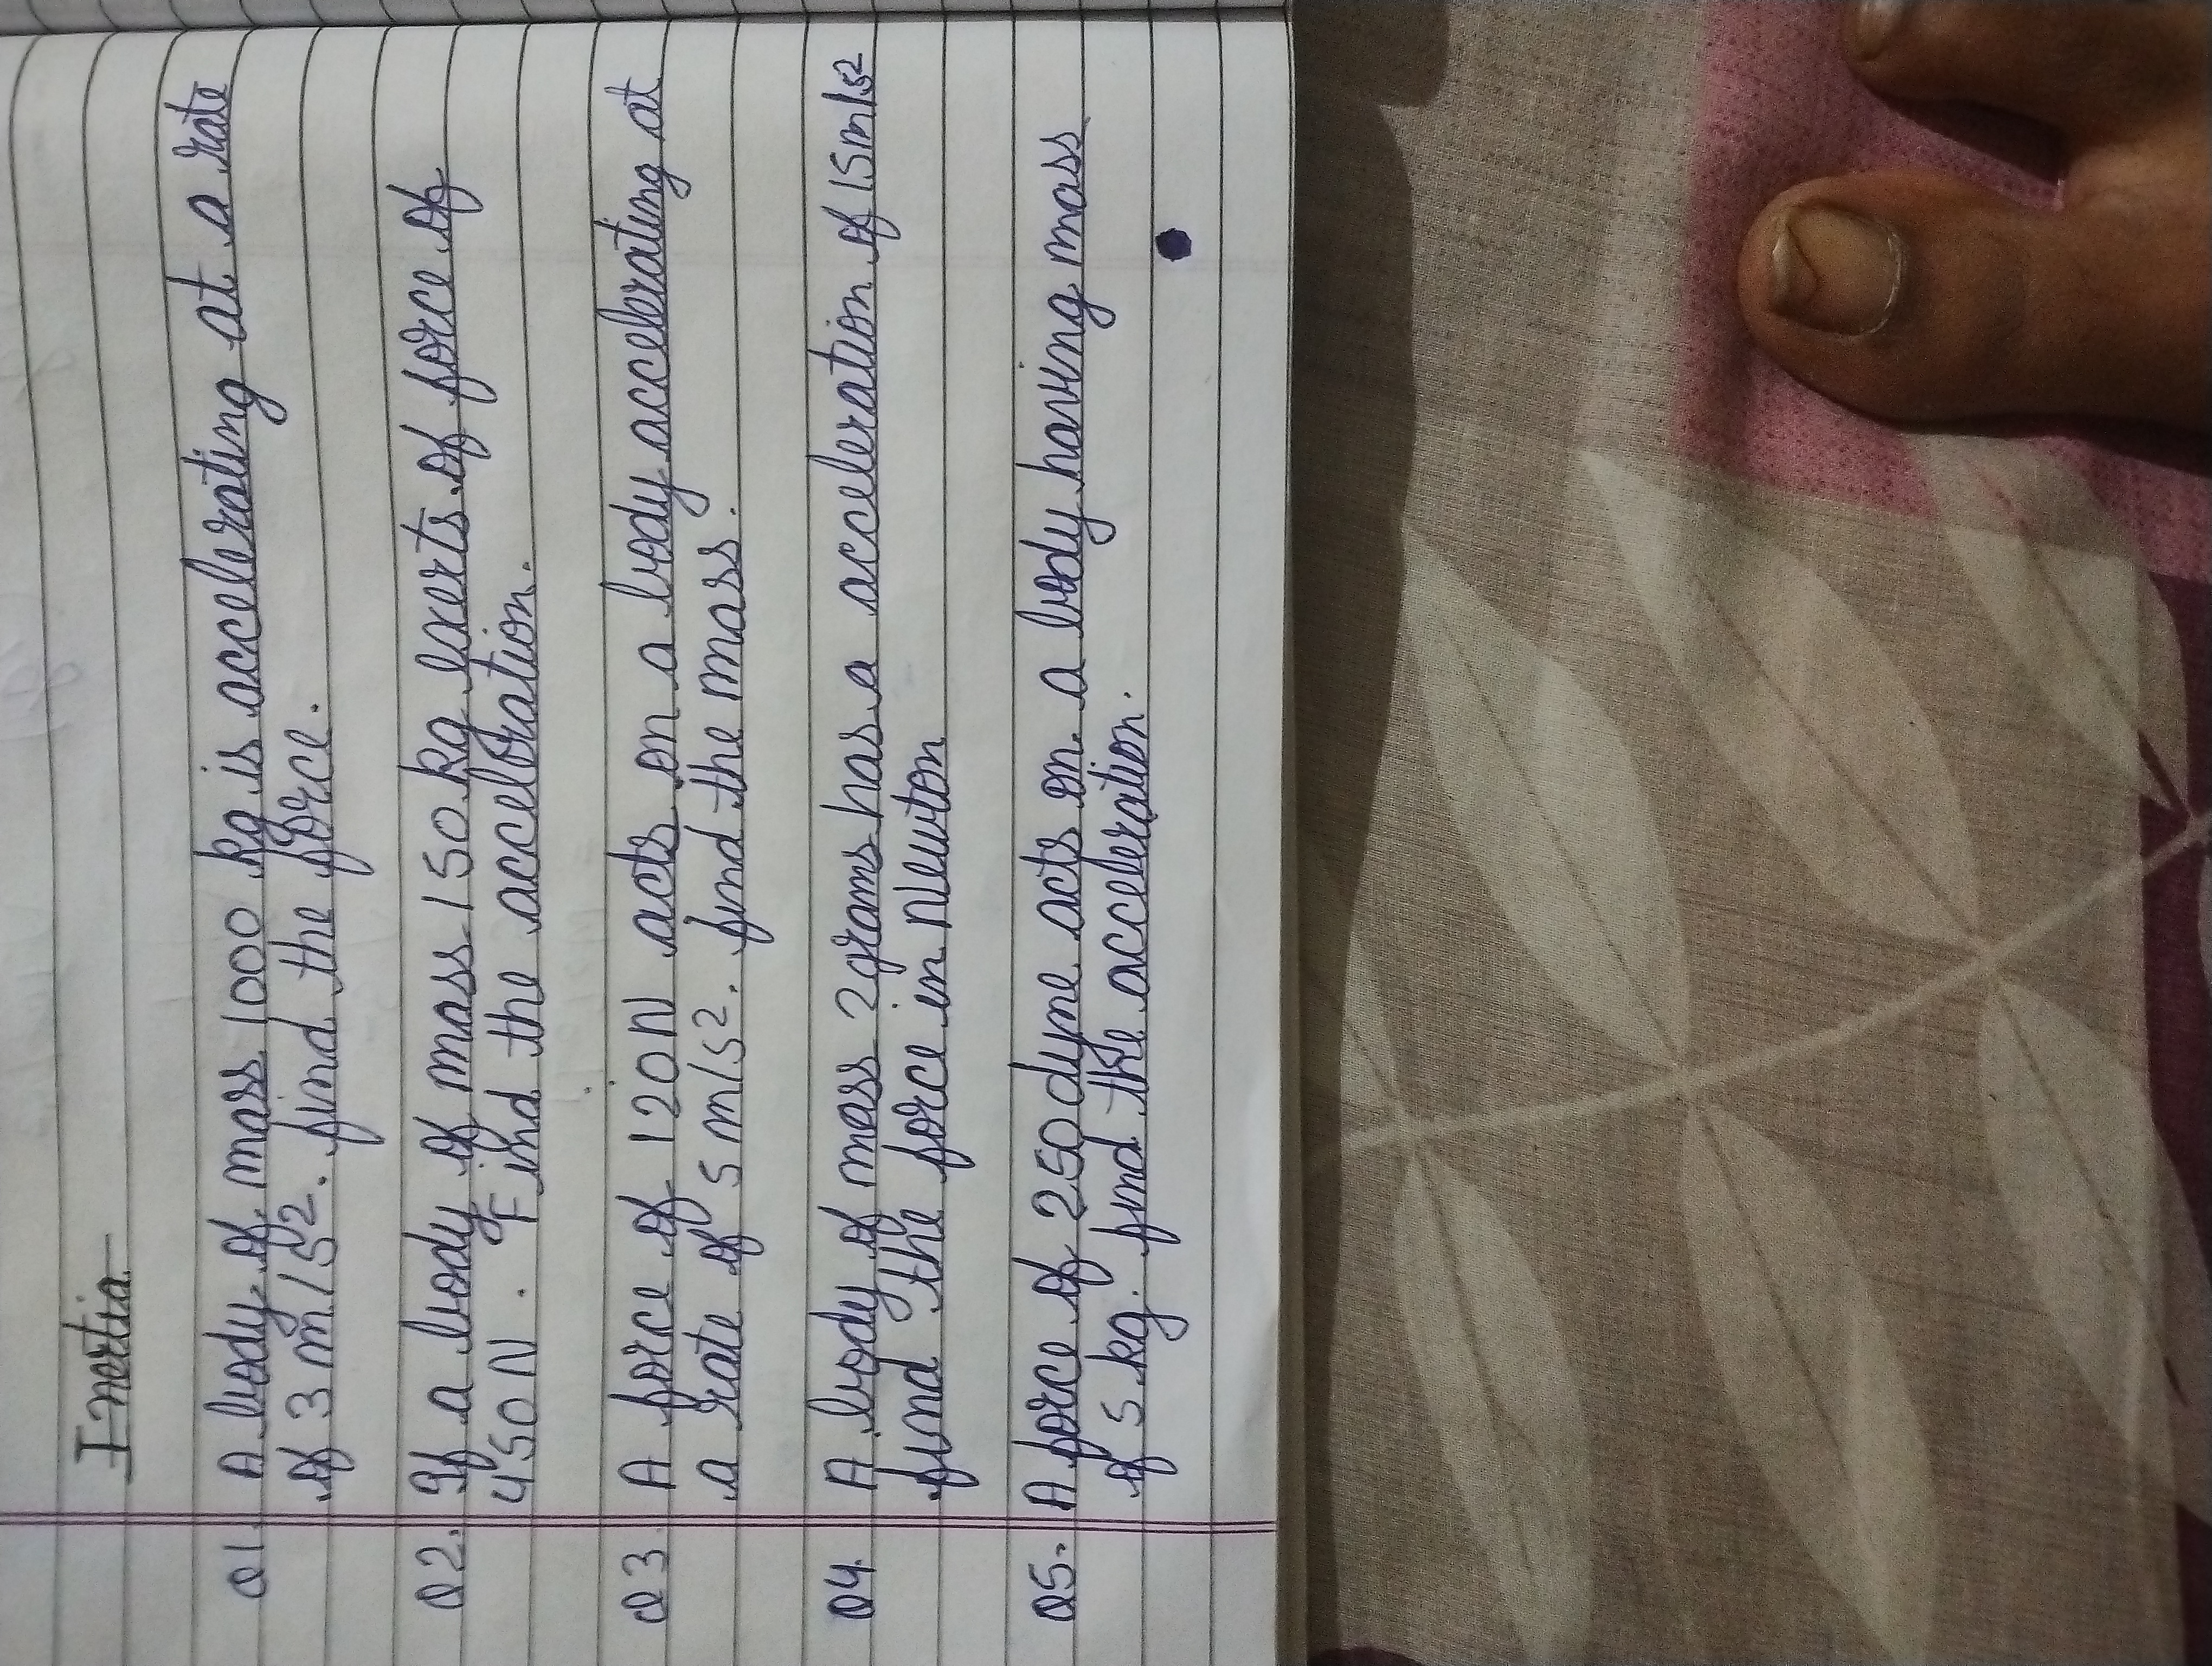 Inertia
Q1. A body of mass 1000 kg is accelerating at a rate
of 3 m/s². find the force.
Q2. If a body of mass 150 kg exerts of force of
450N. Find the acceleration.
Q3. A force of 120N acts on a body accelerating at
a rate of 5 m/s². find the mass.
Q4. A body of mass 2grams has a acceleration of 15m/s²
find the force in Newton
Q5. A force of 250dyne acts on a body having mass
of 5 kg. find the acceleration.